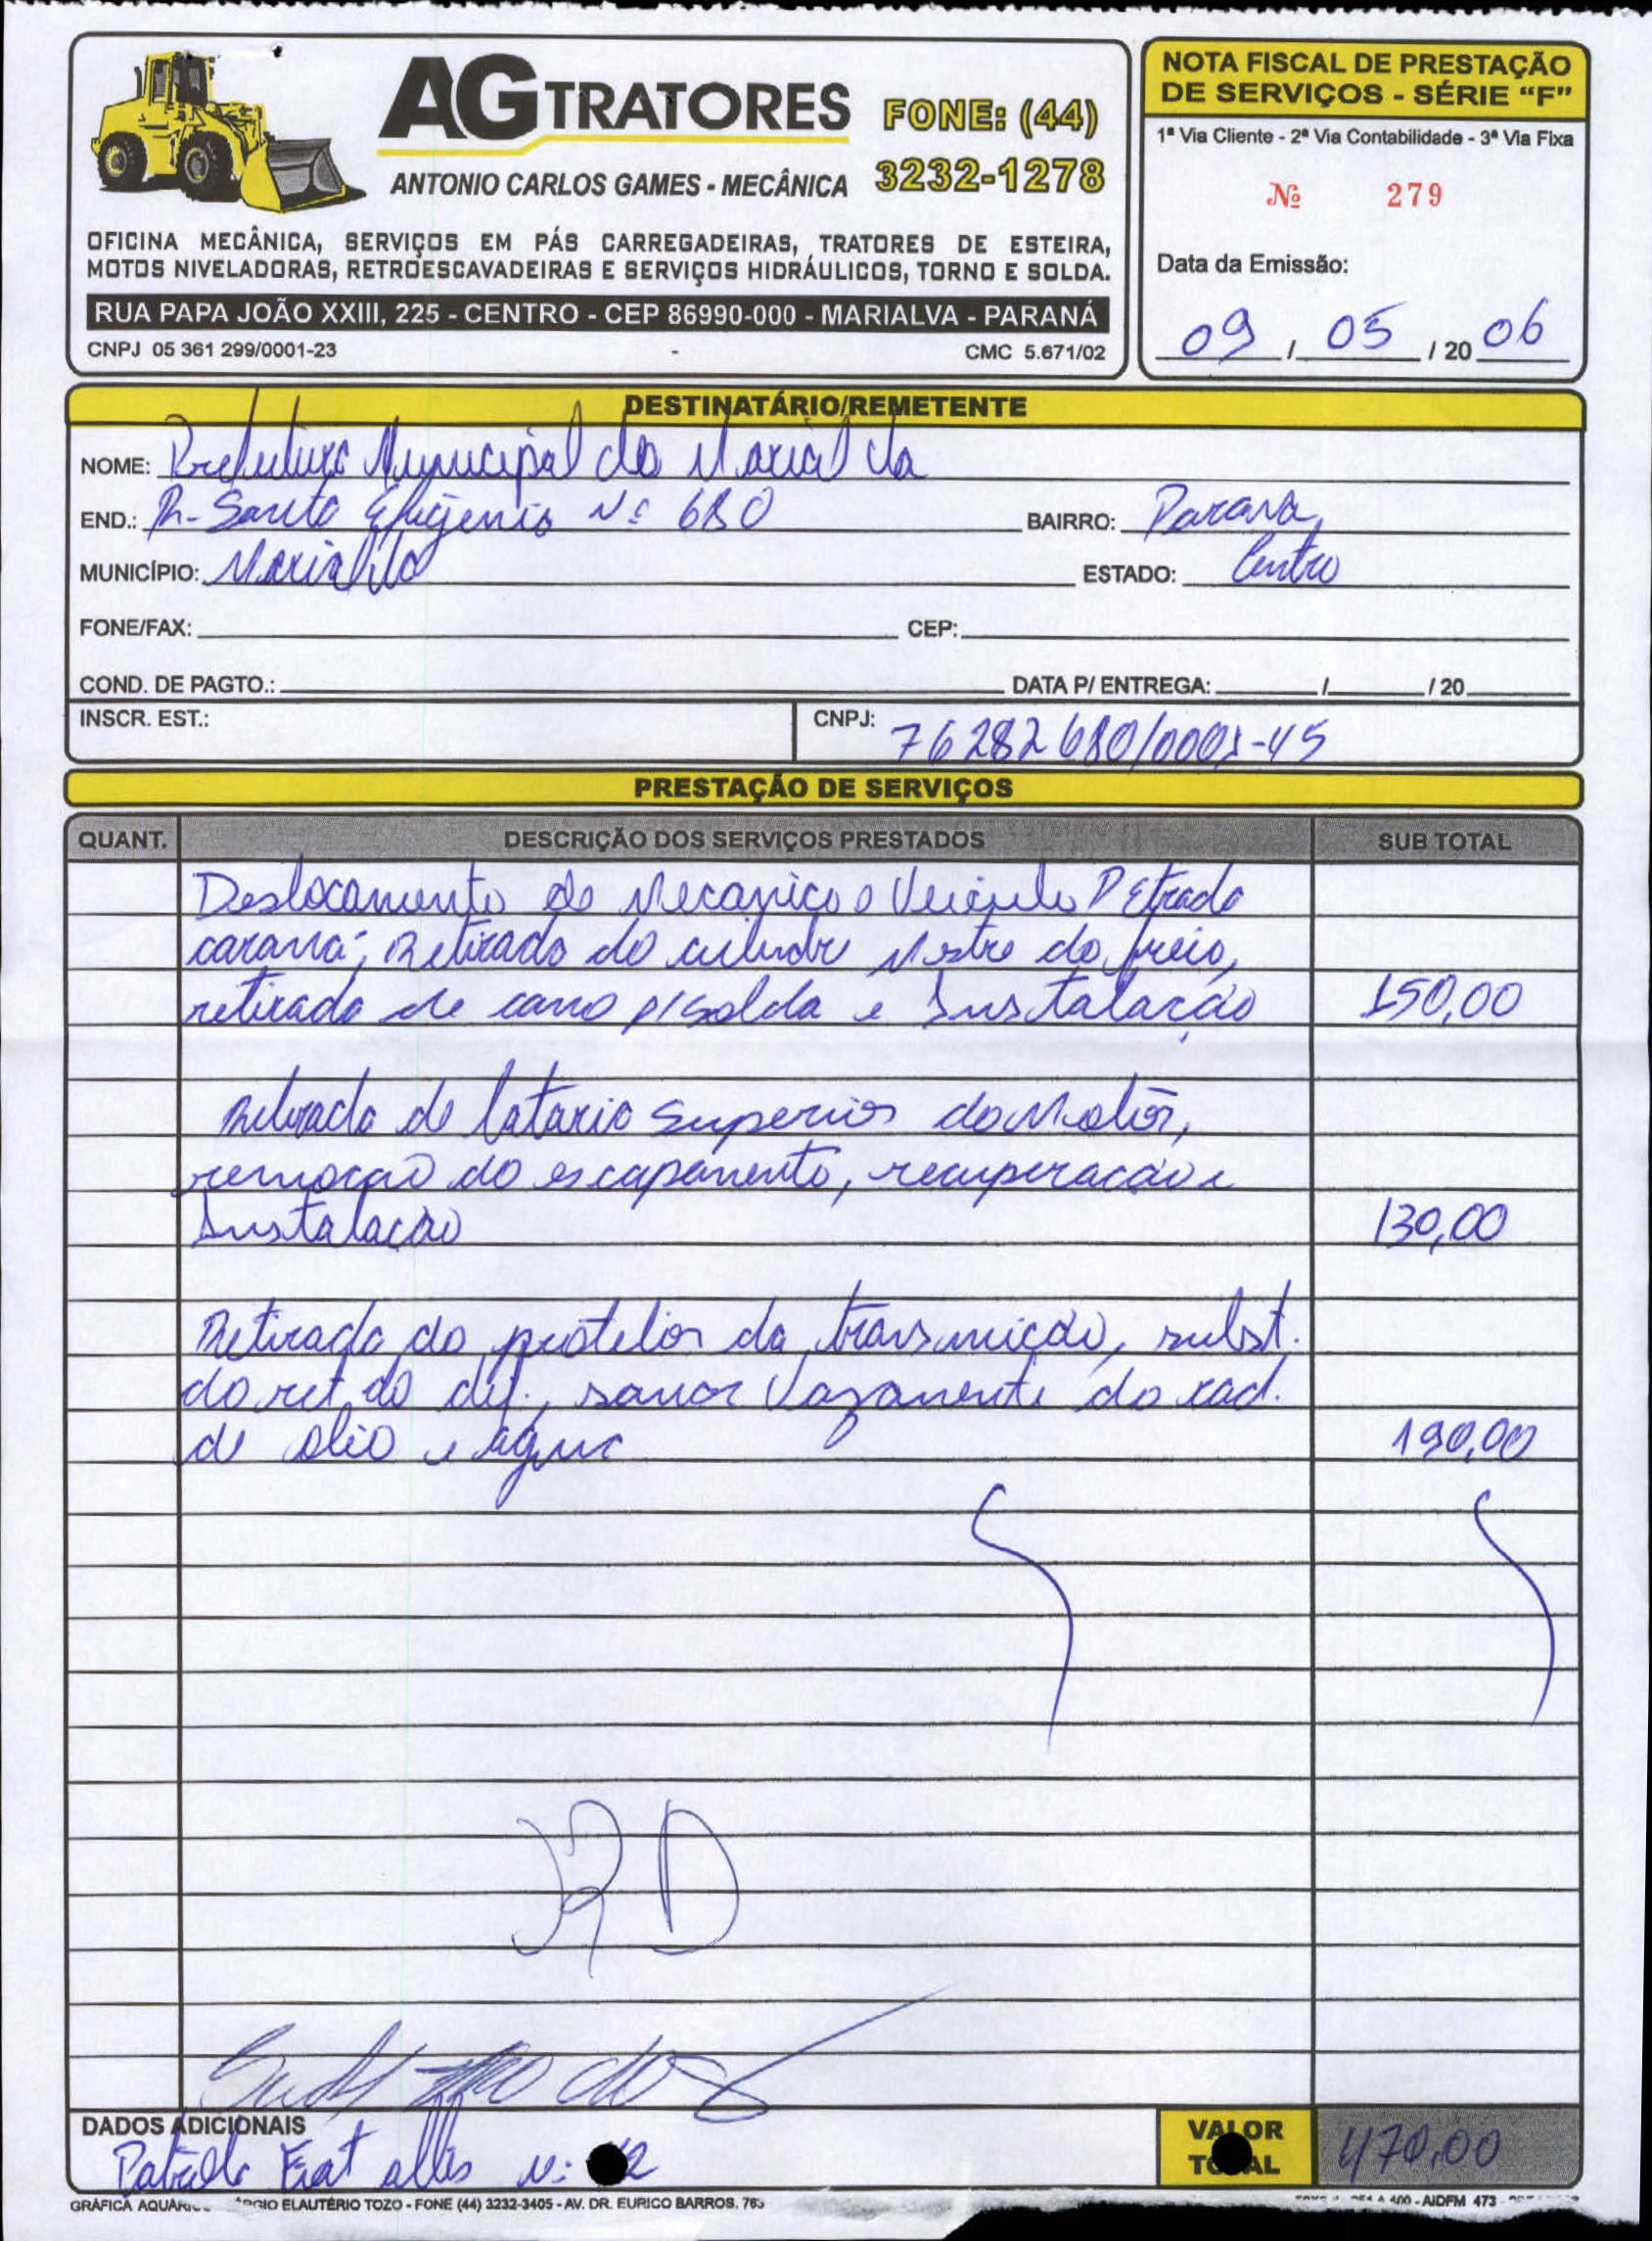 AG TRATORES
ANTONIO CARLOS GAMES - MECÂNICA
FONE: (44)
3232-1278
OFICINA MECÂNICA, SERVIÇOS EM PÁS CARREGADEIRAS, TRATORES DE ESTEIRA,
MOTOS NIVELADORAS, RETROESCAVADEIRAS E SERVIÇOS HIDRÁULICOS, TORNO E SOLDA.
RUA PAPA JOÃO XXIII, 225 - CENTRO - CEP 86990-000 - MARIALVA - PARANÁ
CNPJ 05 361 299/0001-23 CMC 5.671/02
NOTA FISCAL DE PRESTAÇÃO
DE SERVIÇOS - SÉRIE “F”
1ª Via Cliente - 2ª Via Contabilidade - 3ª Via Fixa
Nº 279
Data da Emissão:
09 / 05 / 20 06
DESTINATÁRIO/REMETENTE
NOME: Prefeitura Municipal de Marialva
END.: R- Santa Efigenia Nº 680 BAIRRO: Parana
MUNICÍPIO: Marialva ESTADO: Centro
FONE/FAX: CEP:
COND. DE PAGTO.: DATA P/ ENTREGA: / / 20
INSCR. EST.: CNPJ: 76282680/0001-45
PRESTAÇÃO DE SERVIÇOS
QUANT. DESCRIÇÃO DOS SERVIÇOS PRESTADOS SUB TOTAL
Deslocamento de Mecanico e Veiculo P Etrada
carana; Retirada do cilindro Mestre do freio,
retirada de cano p/ solda e Instalacão 150,00
Retirada de lataria Superior do Motor,
remoção do escapamento, recuperacão e
Instalacão 130,00
Retirada do protetor da transmicão, subst.
do ret. do dif., sanar Vazamento do rad.
de oleo e agua 190,00
DADOS ADICIONAIS
Patrola Fiat allis Nº
VALOR
TOTAL 470,00
GRÁFICA ELAUTÉRIO TOZO - FONE (44) 3232-3405 - AV. DR. EURICO BARROS,
AIDFM 473